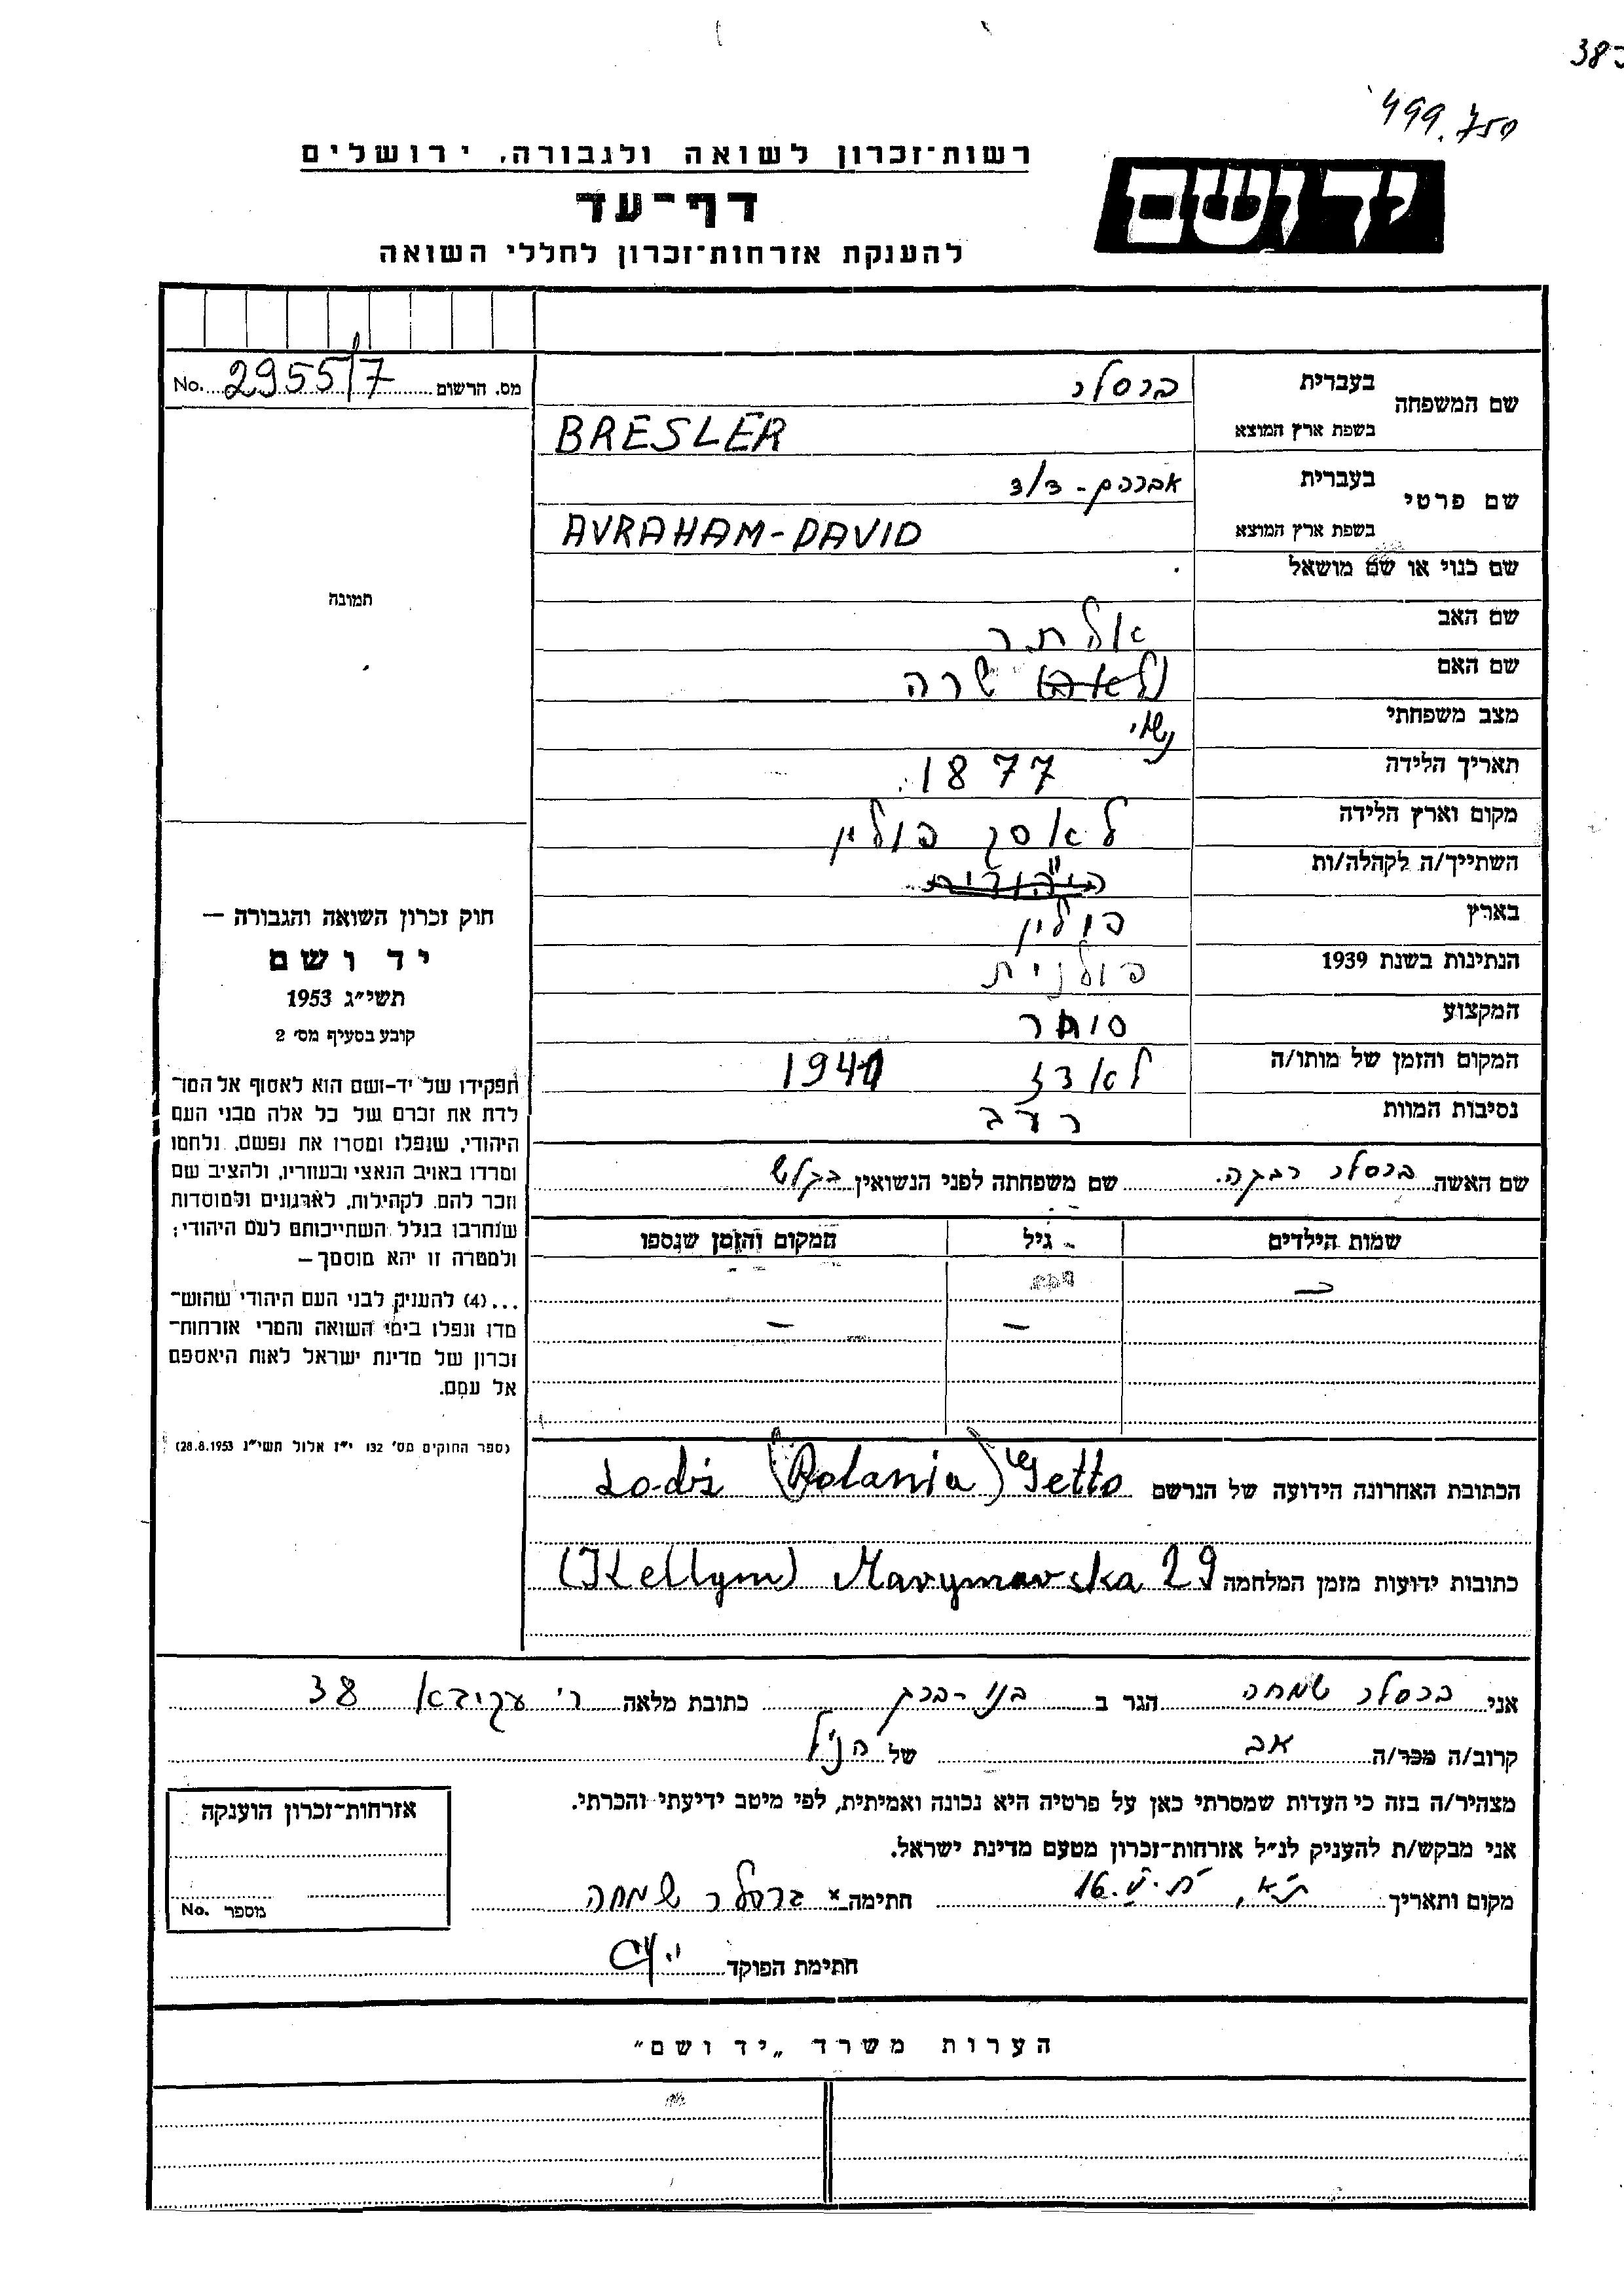 499.750
רשות־זכרון לשואה ולגבורה, ירושלים
יד ושם
דף־עד
להענקת אזרחות־זכרון לחללי השואה
מס. הרשום 2955/7 No.
שם המשפחה
בעברית ברסלר
בשפת ארץ המוצא BRESLER
שם פרטי
בעברית אברהם - דוד
בשפת ארץ המוצא AVRAHAM-DAVID
שם כנוי או שם מושאל
שם האב אלתר
שם האם שרה
מצב משפחתי נשוי
תאריך הלידה 1877
מקום וארץ הלידה לאסק פולין
השתייך/ה לקהלה/ות
בארץ פולין
הנתינות בשנת 1939 פולנית
המקצוע סוחר
המקום והזמן של מותו/ה לאדז
נסיבות המוות רעב
שם האשה ברסלר רבקה. שם משפחתה לפני הנשואין
שמות הילדים גיל המקום והזמן שנספו
הכתובת האחרונה הידועה של הנרשם Lodź (Polania) Getto
כתובות ידועות מזמן המלחמה Marymarska 29
תמונה
חוק זכרון השואה והגבורה —
יד ושם
תשי״ג 1953
קובע בסעיף מס׳ 2
תפקידו של יד-ושם הוא לאסוף אל המו־
לדת את זכרם של כל אלה מבני העם
היהודי, שנפלו ומסרו את נפשם, נלחמו
ומרדו באויב הנאצי ובעוזריו, ולהציב שם
וזכר להם, לקהילות, לארגונים ולמוסדות
שנחרבו בגלל השתייכותם לעם היהודי;
ולמטרה זו יהא מוסמך —
...(4) להעניק לבני העם היהודי שהוש־
מדו ונפלו בימי השואה והמרי אזרחות־
זכרון של מדינת ישראל לאות היאספם
אל עמם.
(ספר החוקים מס׳ 132 י״ז אלול תשי״ג 28.8.1953)
אני ברסלר שמחה הגר ב בני-ברק כתובת מלאה ר' עקיבא 38
קרוב/ה מכר/ה אב של הנ״ל
מצהיר/ה בזה כי העדות שמסרתי כאן על פרטיה היא נכונה ואמיתית, לפי מיטב ידיעתי והכרתי.
אני מבקש/ת להעניק לנ״ל אזרחות־זכרון מטעם מדינת ישראל.
מקום ותאריך ת״א, חתימה ברסלר שמחה
חתימת הפוקד
אזרחות־זכרון הוענקה
מספר No.
הערות משרד „יד ושם״